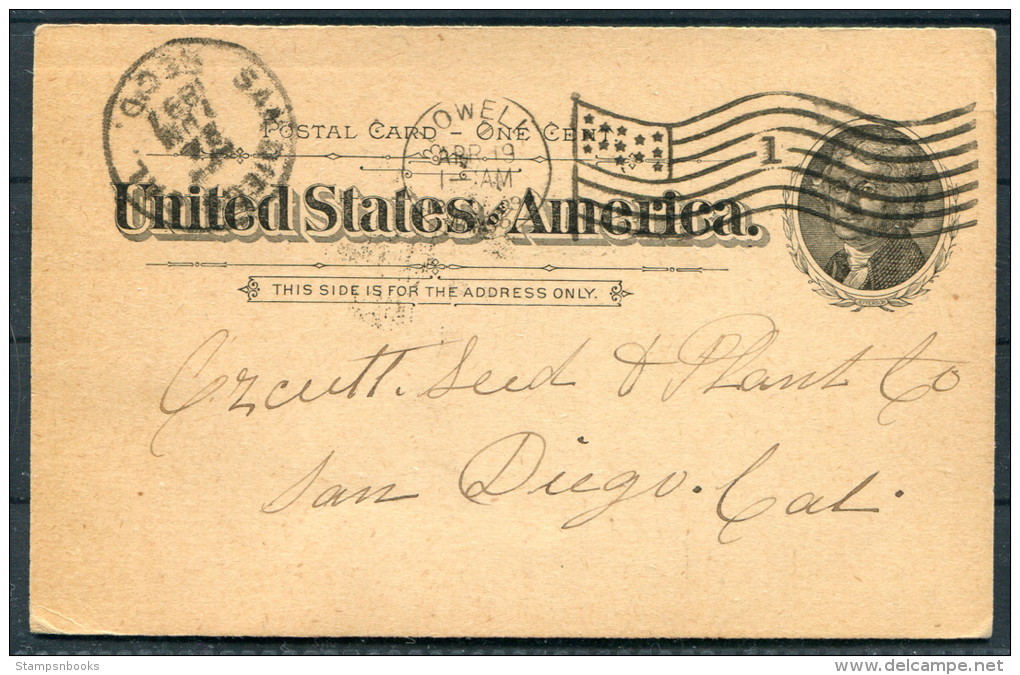 POSTAL CARD – ONE CENT.
United States of America.
THIS SIDE IS FOR THE ADDRESS ONLY.
LOWELL
APR 19
1- AM
1
SAN DIEGO
REC'D.
JEFFERSON
Orcutt. Seed & Plant Co
San Diego. Cal.
Stampsnbooks
www.delcampe.net